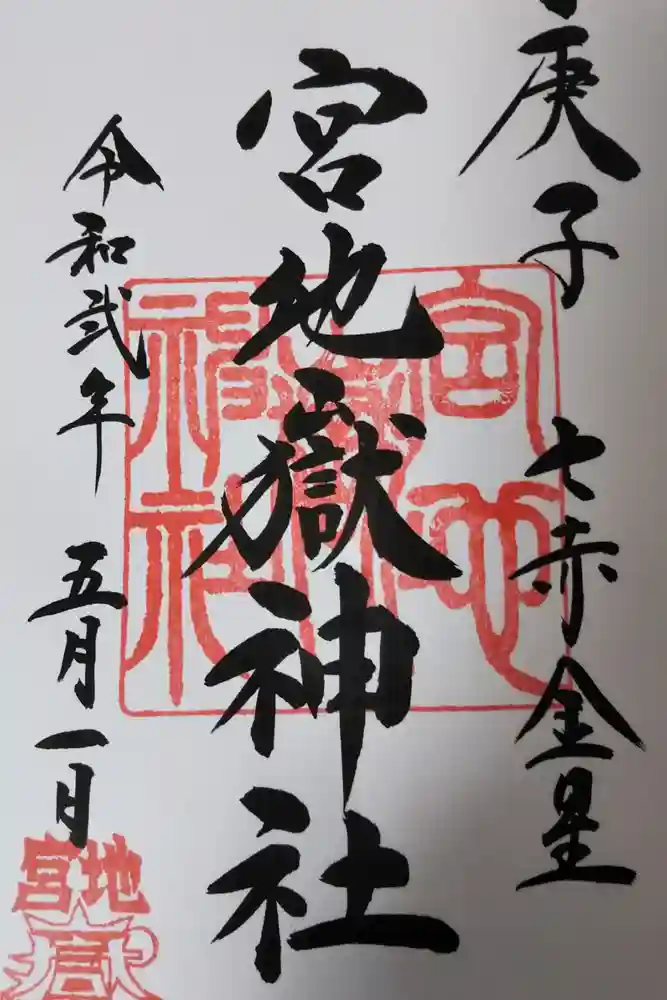 庚子 七赤金星
宮地嶽神社
令和弐年 五月一日
宮地嶽神社
宮地嶽